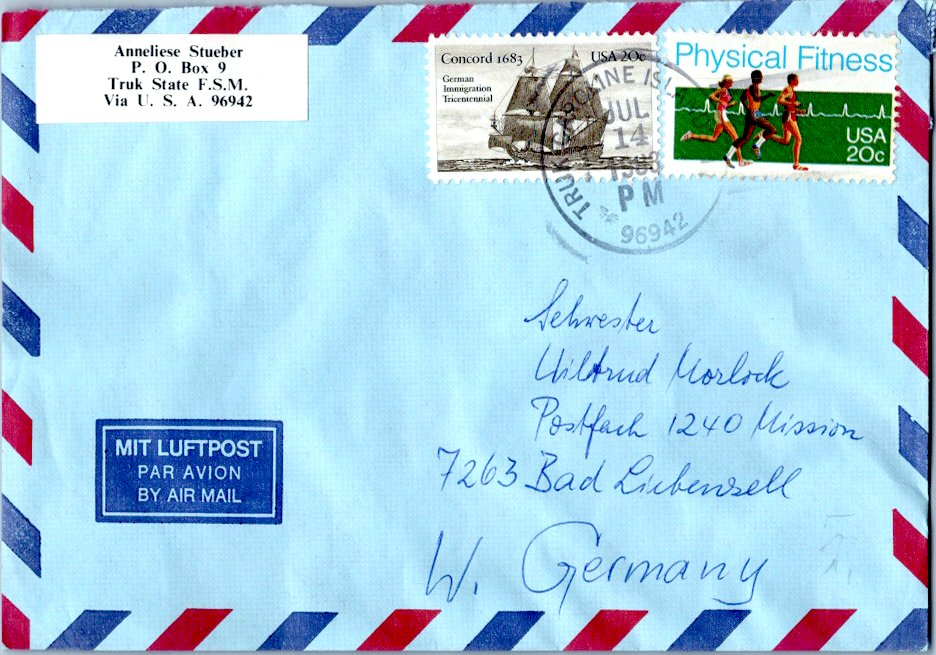 Anneliese Stueber
P. O. Box 9
Truk State F.S.M.
Via U. S. A. 96942
Concord 1683
USA 20c
German
Immigration
Tricentennial
Physical Fitness
USA
20c
TRUK CAROLINE ISL
JUL
14
1983
PM
96942
Schwester
Wiltrud Morlock
Postfach 1240 Mission
7263 Bad Liebenzell
W. Germany
MIT LUFTPOST
PAR AVION
BY AIR MAIL